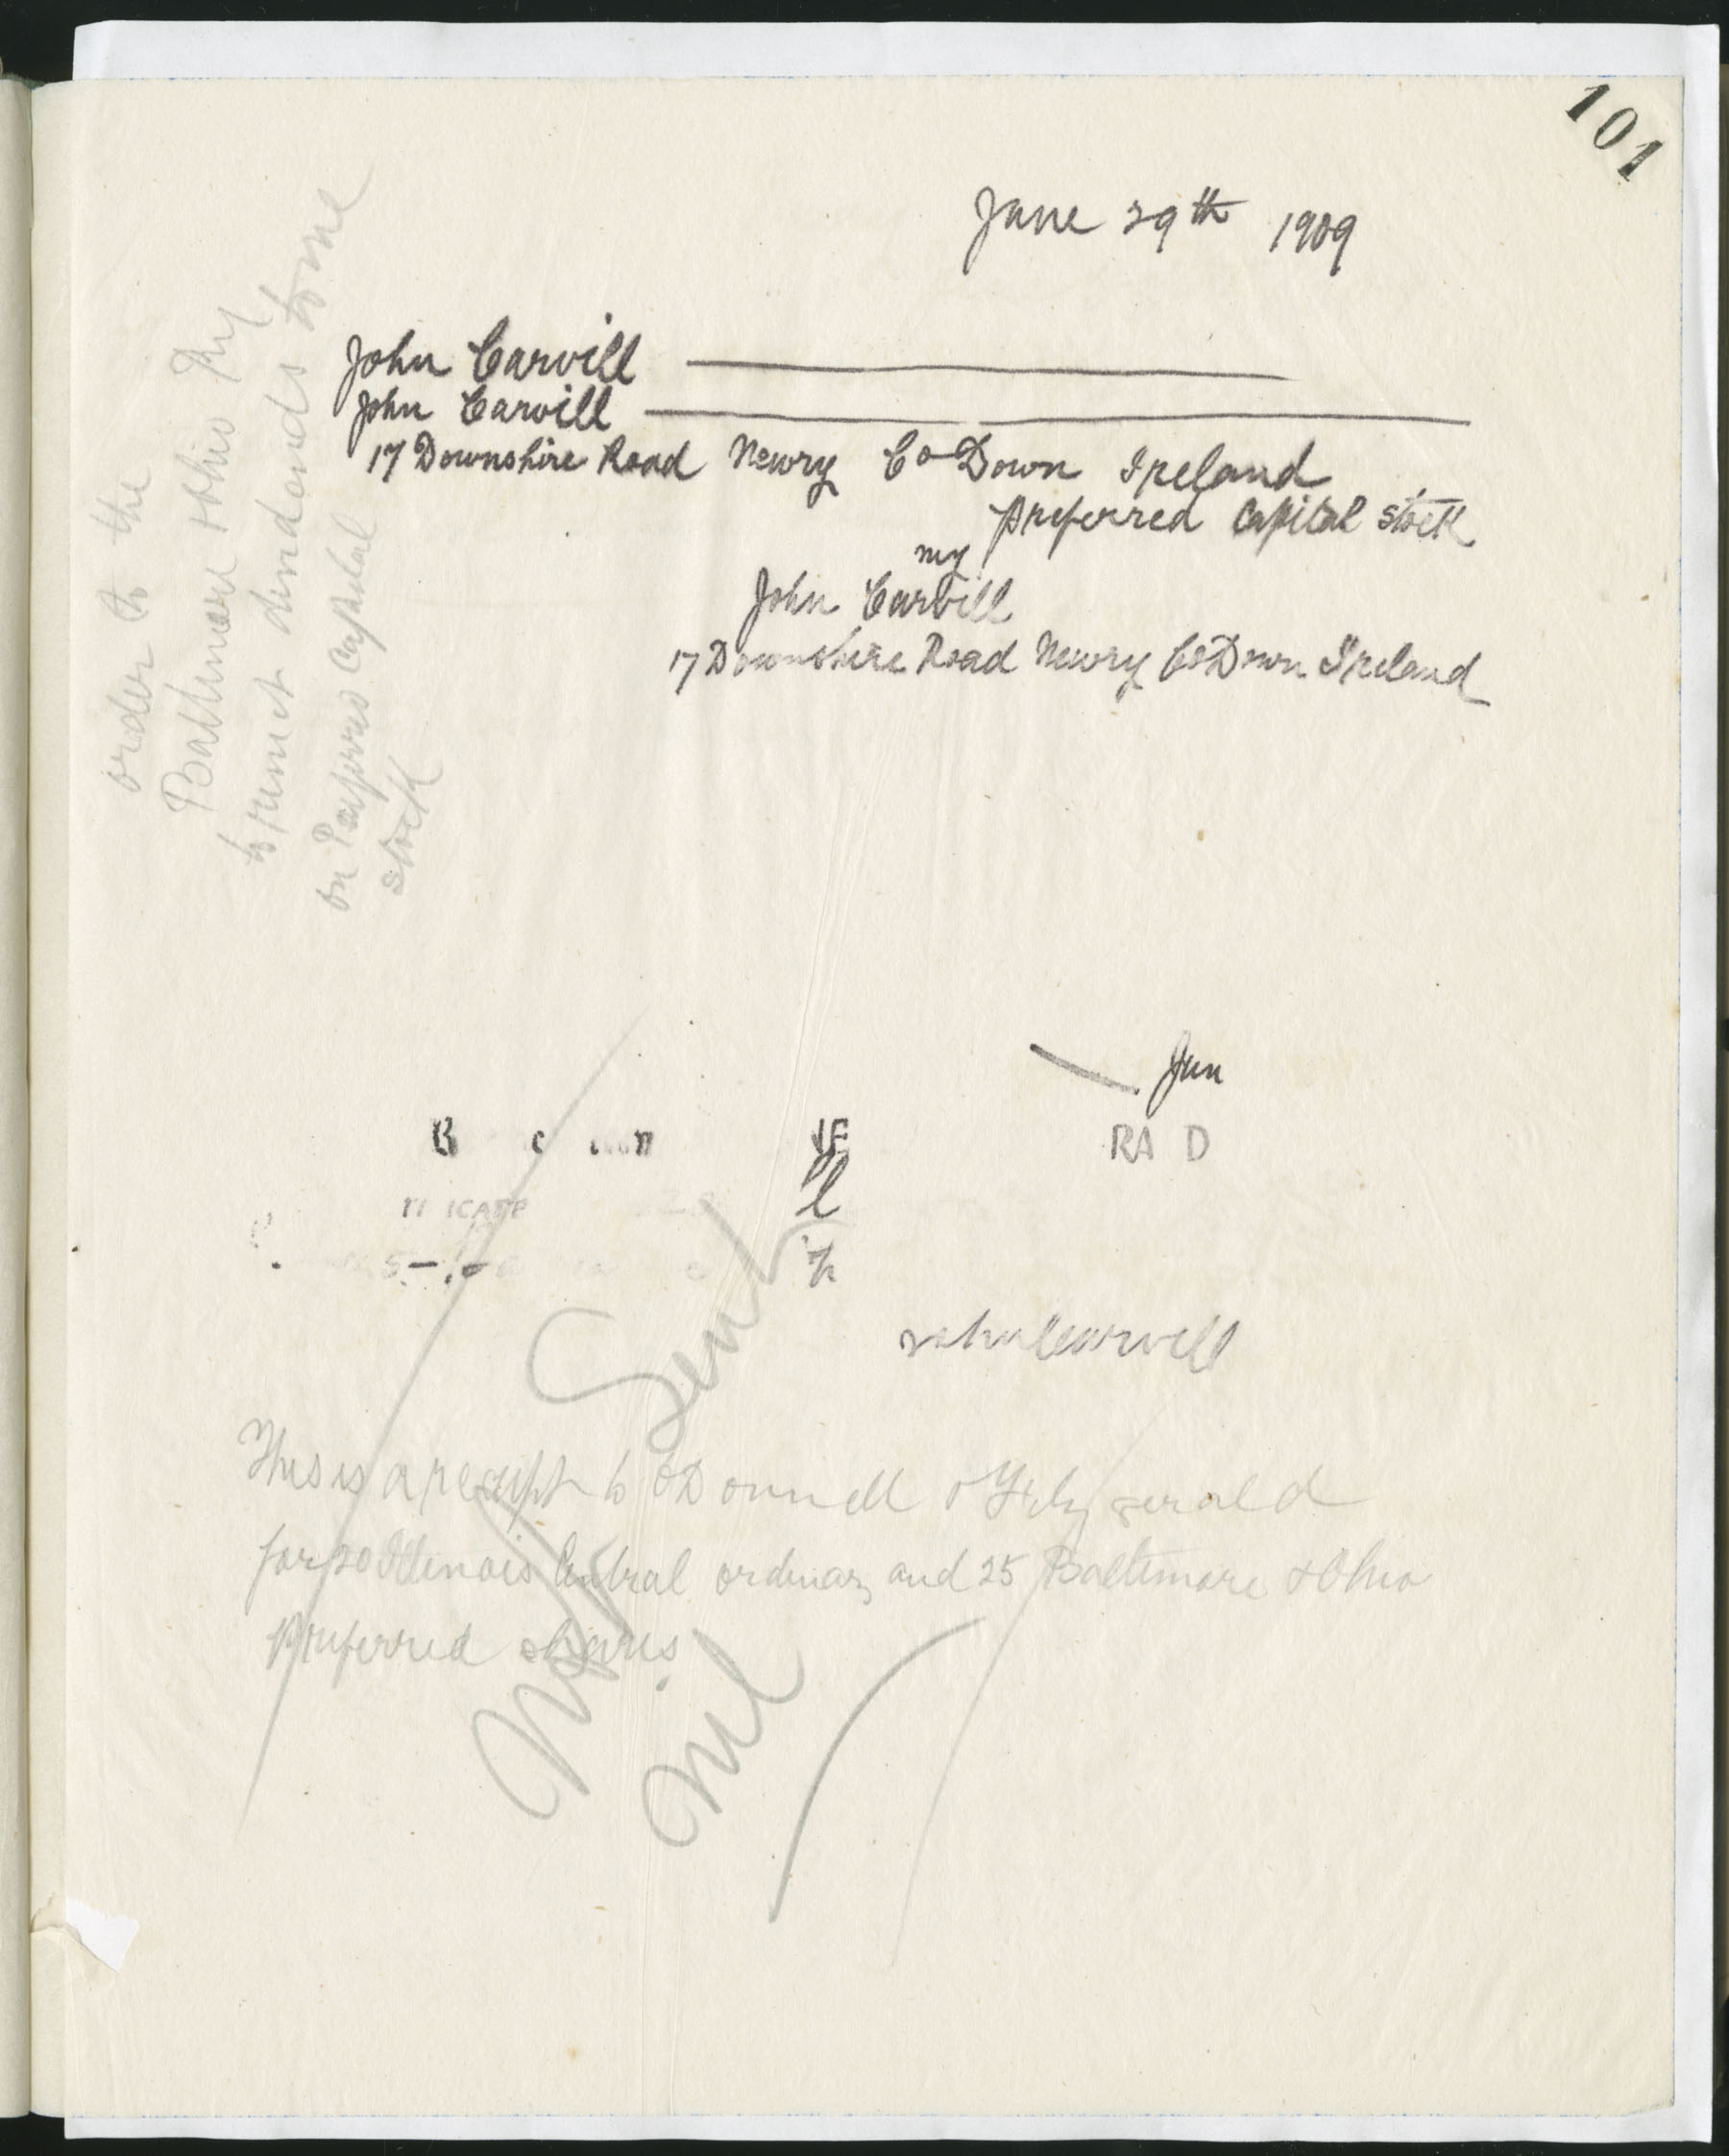 101
June 29th 1909
John Carvill
John Carvill
17 Downshire Road Newry Co Down Ireland
preferred capital stock
my
John Carvill
17 Downshire Road Newry Co Down Ireland
order to the
Baltimore & Ohio Rly
to remit dividends to me
on Preferred Capital
stock
Jun
RA D
John Carvill
Sent
This is a receipt to O'Donnell & Fitzgerald
for 20 Illinois Central ordinary and 25 Baltimore & Ohio
Preferred shares
nil